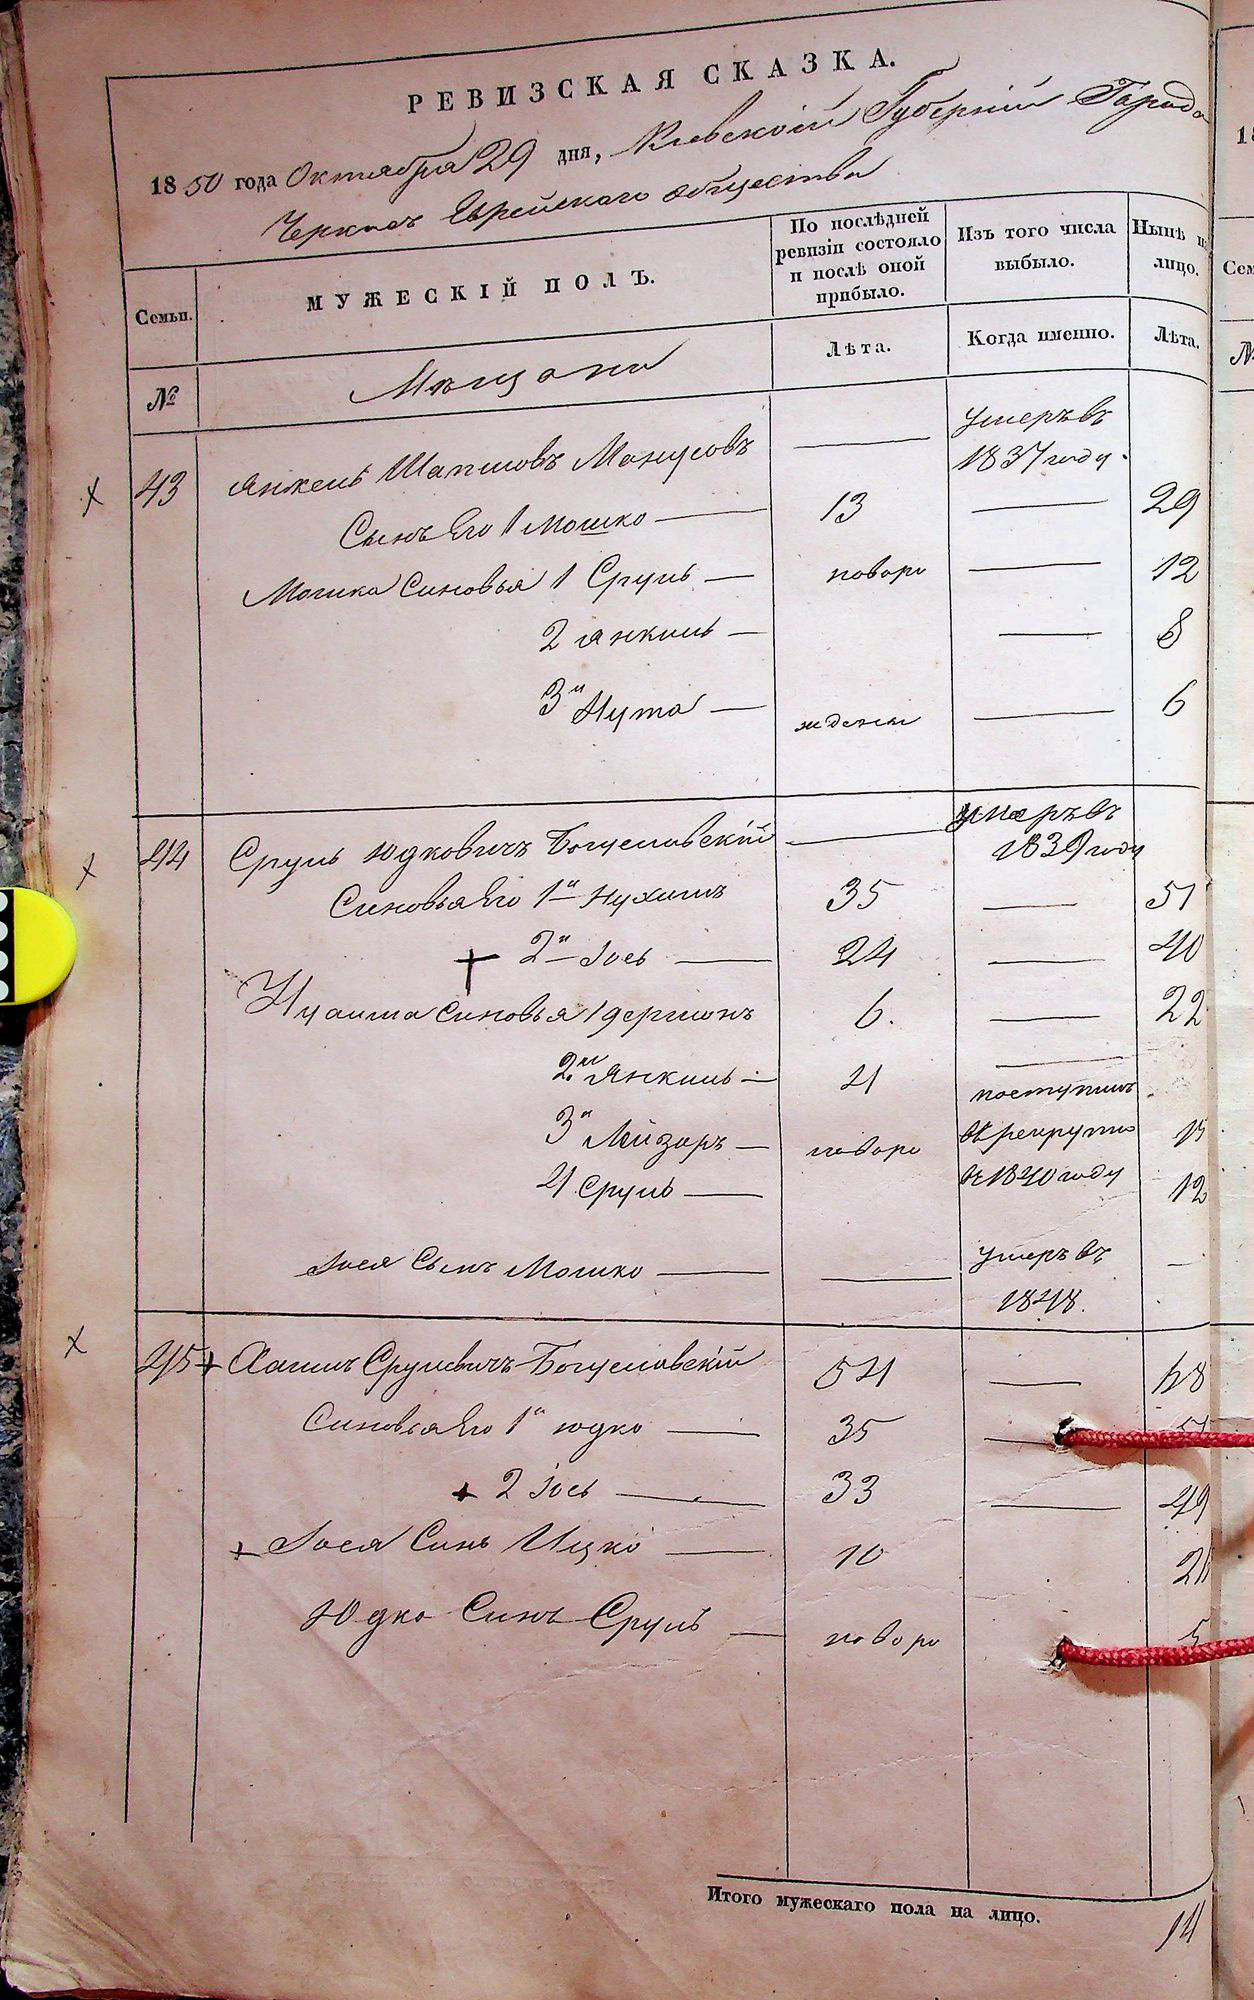 РЕВИЗСКАЯ СКАЗКА.
1850 года Октября 29 дня, Киевской Губерніи Города
Черкас Еврейскаго общества
Семьи. МУЖЕСКІЙ ПОЛЪ. По послѣдней ревизіи состояло и послѣ оной прибыло. Изъ того числа выбыло. Нынѣ на лицо.
Лѣта. Когда именно. Лѣта.
№ Мѣщани
умеръ въ
43 Янкель Шапсиовъ Манусовъ — 1837 году.
Сынъ Его 1 Мошко — 13 — 29
Мошка Синовья 1 Сруль — новоро — 12
2 Янкиль — — 8
3й Нута — жденны — 6
умеръ въ
44 Сруль Юдковичъ Богуславскій — 1839 году
Синовья Его 1й Нухимъ 35 — 51
+ 2й Іось — 24 — 40
Нухима Синовья 1 Гершонъ 6. — 22
2й Янкиль — 4 — поступилъ
3й Лейзоръ — новоро в рекруты 15
4 Сруль — в 1840 году 12
Іося Сынъ Мошко — — умеръ въ —
1848.
45 + Хаимъ Срулевичъ Богуславскій 54 — 68
Синовья Его 1й Юдко — 35 — 51
+ 2 Іось — 33 — 49
+ Іося Синъ Ицко — 10 26
Юдко Синъ Сруль — новоро 5
Итого мужескаго пола на лицо. 14